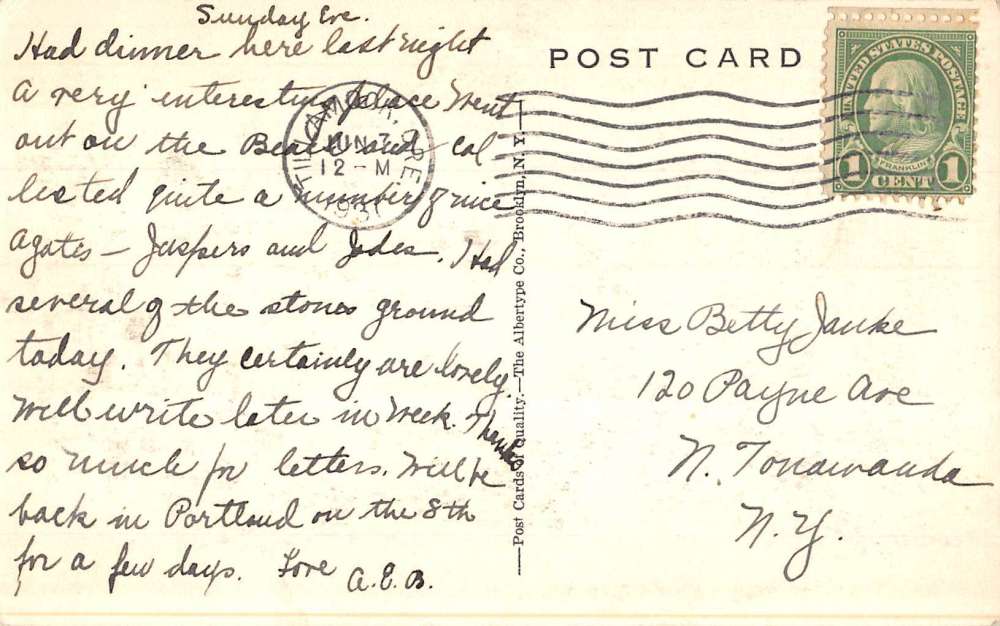 Sunday Eve.
Had dinner here last night
A very interesting place Went
out on the Beach and col
lected quite a number of nice
agates – Jaspers and Jades. I Had
several of the stones ground
today. They certainly are lovely.
Will write later in Week. Thanks
so much for letters. Will be
back in Portland on the 8th
for a few days. Love A.E.B.
POST CARD
TILLAMOOK, ORE.
JUN 7
12-M
1931
UNITED STATES POSTAGE
FRANKLIN
1 CENT 1
—Post Cards of Quality.—The Albertype Co., Brooklyn, N. Y.—
Miss Betty Janke
120 Payne Ave
N. Tonawanda
N.Y.